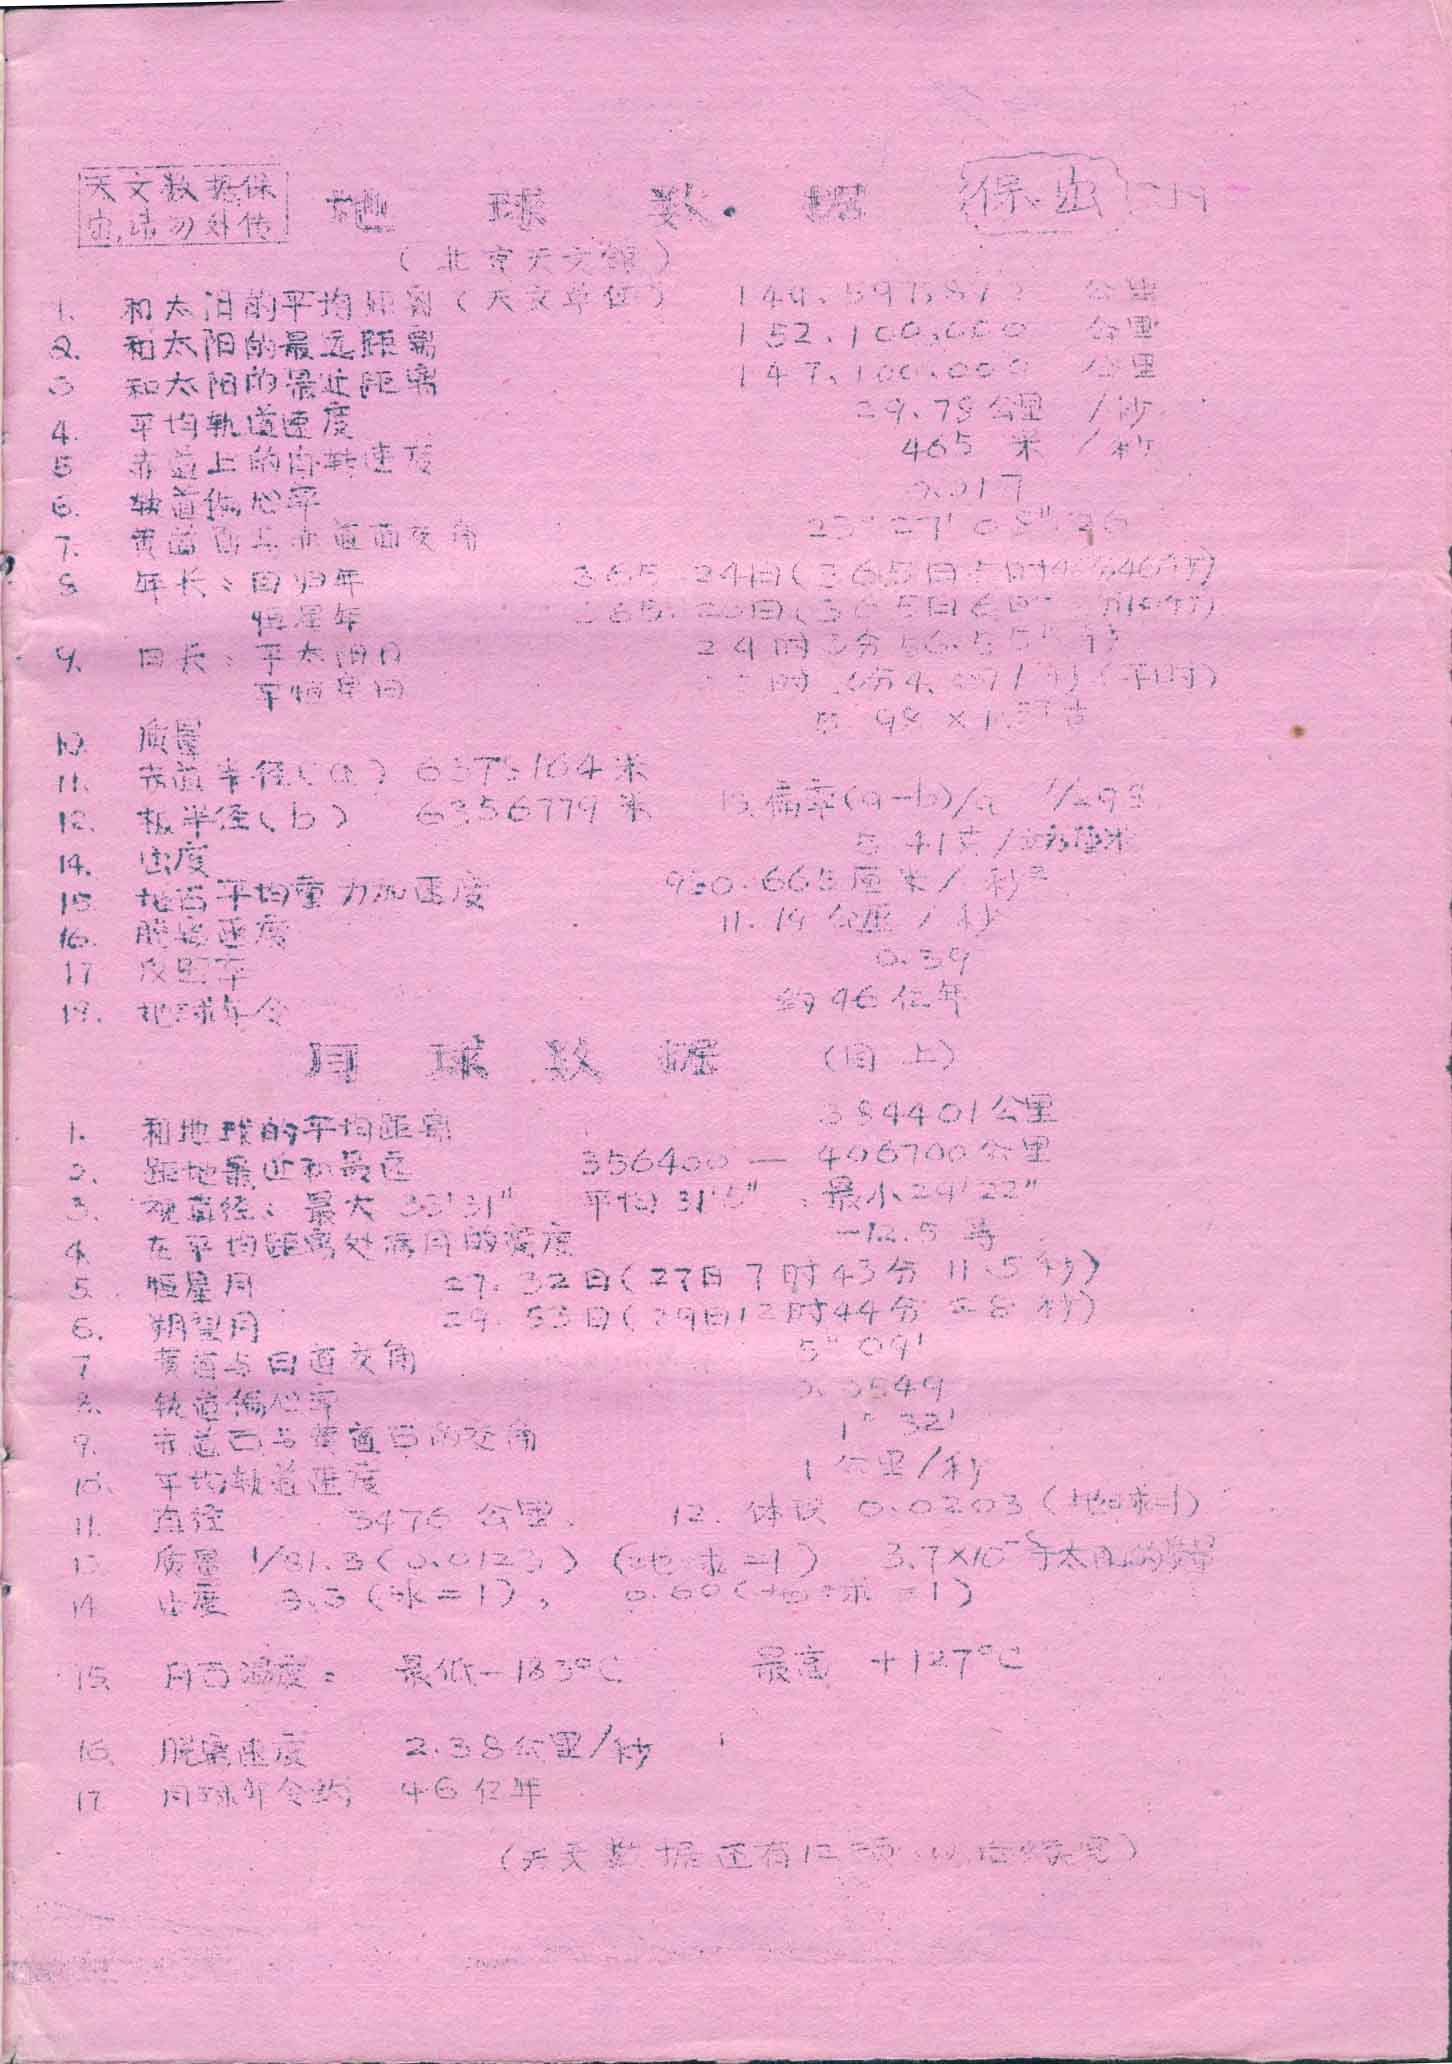 天文数据保
密,请勿外传
地球数据
保密
(北京天文馆)
1. 和太阳的平均距离(天文单位) 公里
2. 和太阳的最远距离 152,100,000 公里
3 和太阳的最近距离 147,100,000 公里
4. 平均轨道速度 29.78公里/秒
5 赤道上的自转速度 465 米/秒
6. 轨道偏心率 0.017
7. 黄道面与赤道面交角
8 年长:回归年 365.24日(365日5时
恒星年
9. 日长:平太阳日 24时3分56.555秒
平恒星日 (平时)
10. 质量
11. 赤道半径(a) 米
12. 极半径(b) 6356779米 13.扁率(a-b)/a 1/298
14. 密度
15. 地面平均重力加速度 980.665厘米/秒²
16. 脱离速度 11.19公里/秒
17 反照率 0.39
18. 地球年令 约46亿年
月球数据 (同上)
1. 和地球的平均距离 384401公里
2. 距地最近和最远 356400—406700公里
3. 视直径:最大33'31" 平均31'5" 最小29'22"
4. 在平均距离处满月的亮度 -12.5等
5. 恒星月 27.32日(27日7时43分11.5秒)
6. 朔望月 29.53日(29日12时44分2.8秒)
7 黄道与白道交角 5°09'
8. 轨道偏心率 0.0549
9. 赤道面与黄道面的交角 1°32'
10. 平均轨道速度 1公里/秒
11. 直径 3476公里. 12. 体积 0.0203(地球=1)
13 质量 1/81.3(0.0123)(地球=1) 太阳的质量
14 密度 3.3(水=1), 0.60(地球=1)
15. 月面温度: 最低-183°C 最高 +127°C
16. 脱离速度 2.38公里/秒
17 月球年令约 46亿年
(天文数据还有12项,以后续完)